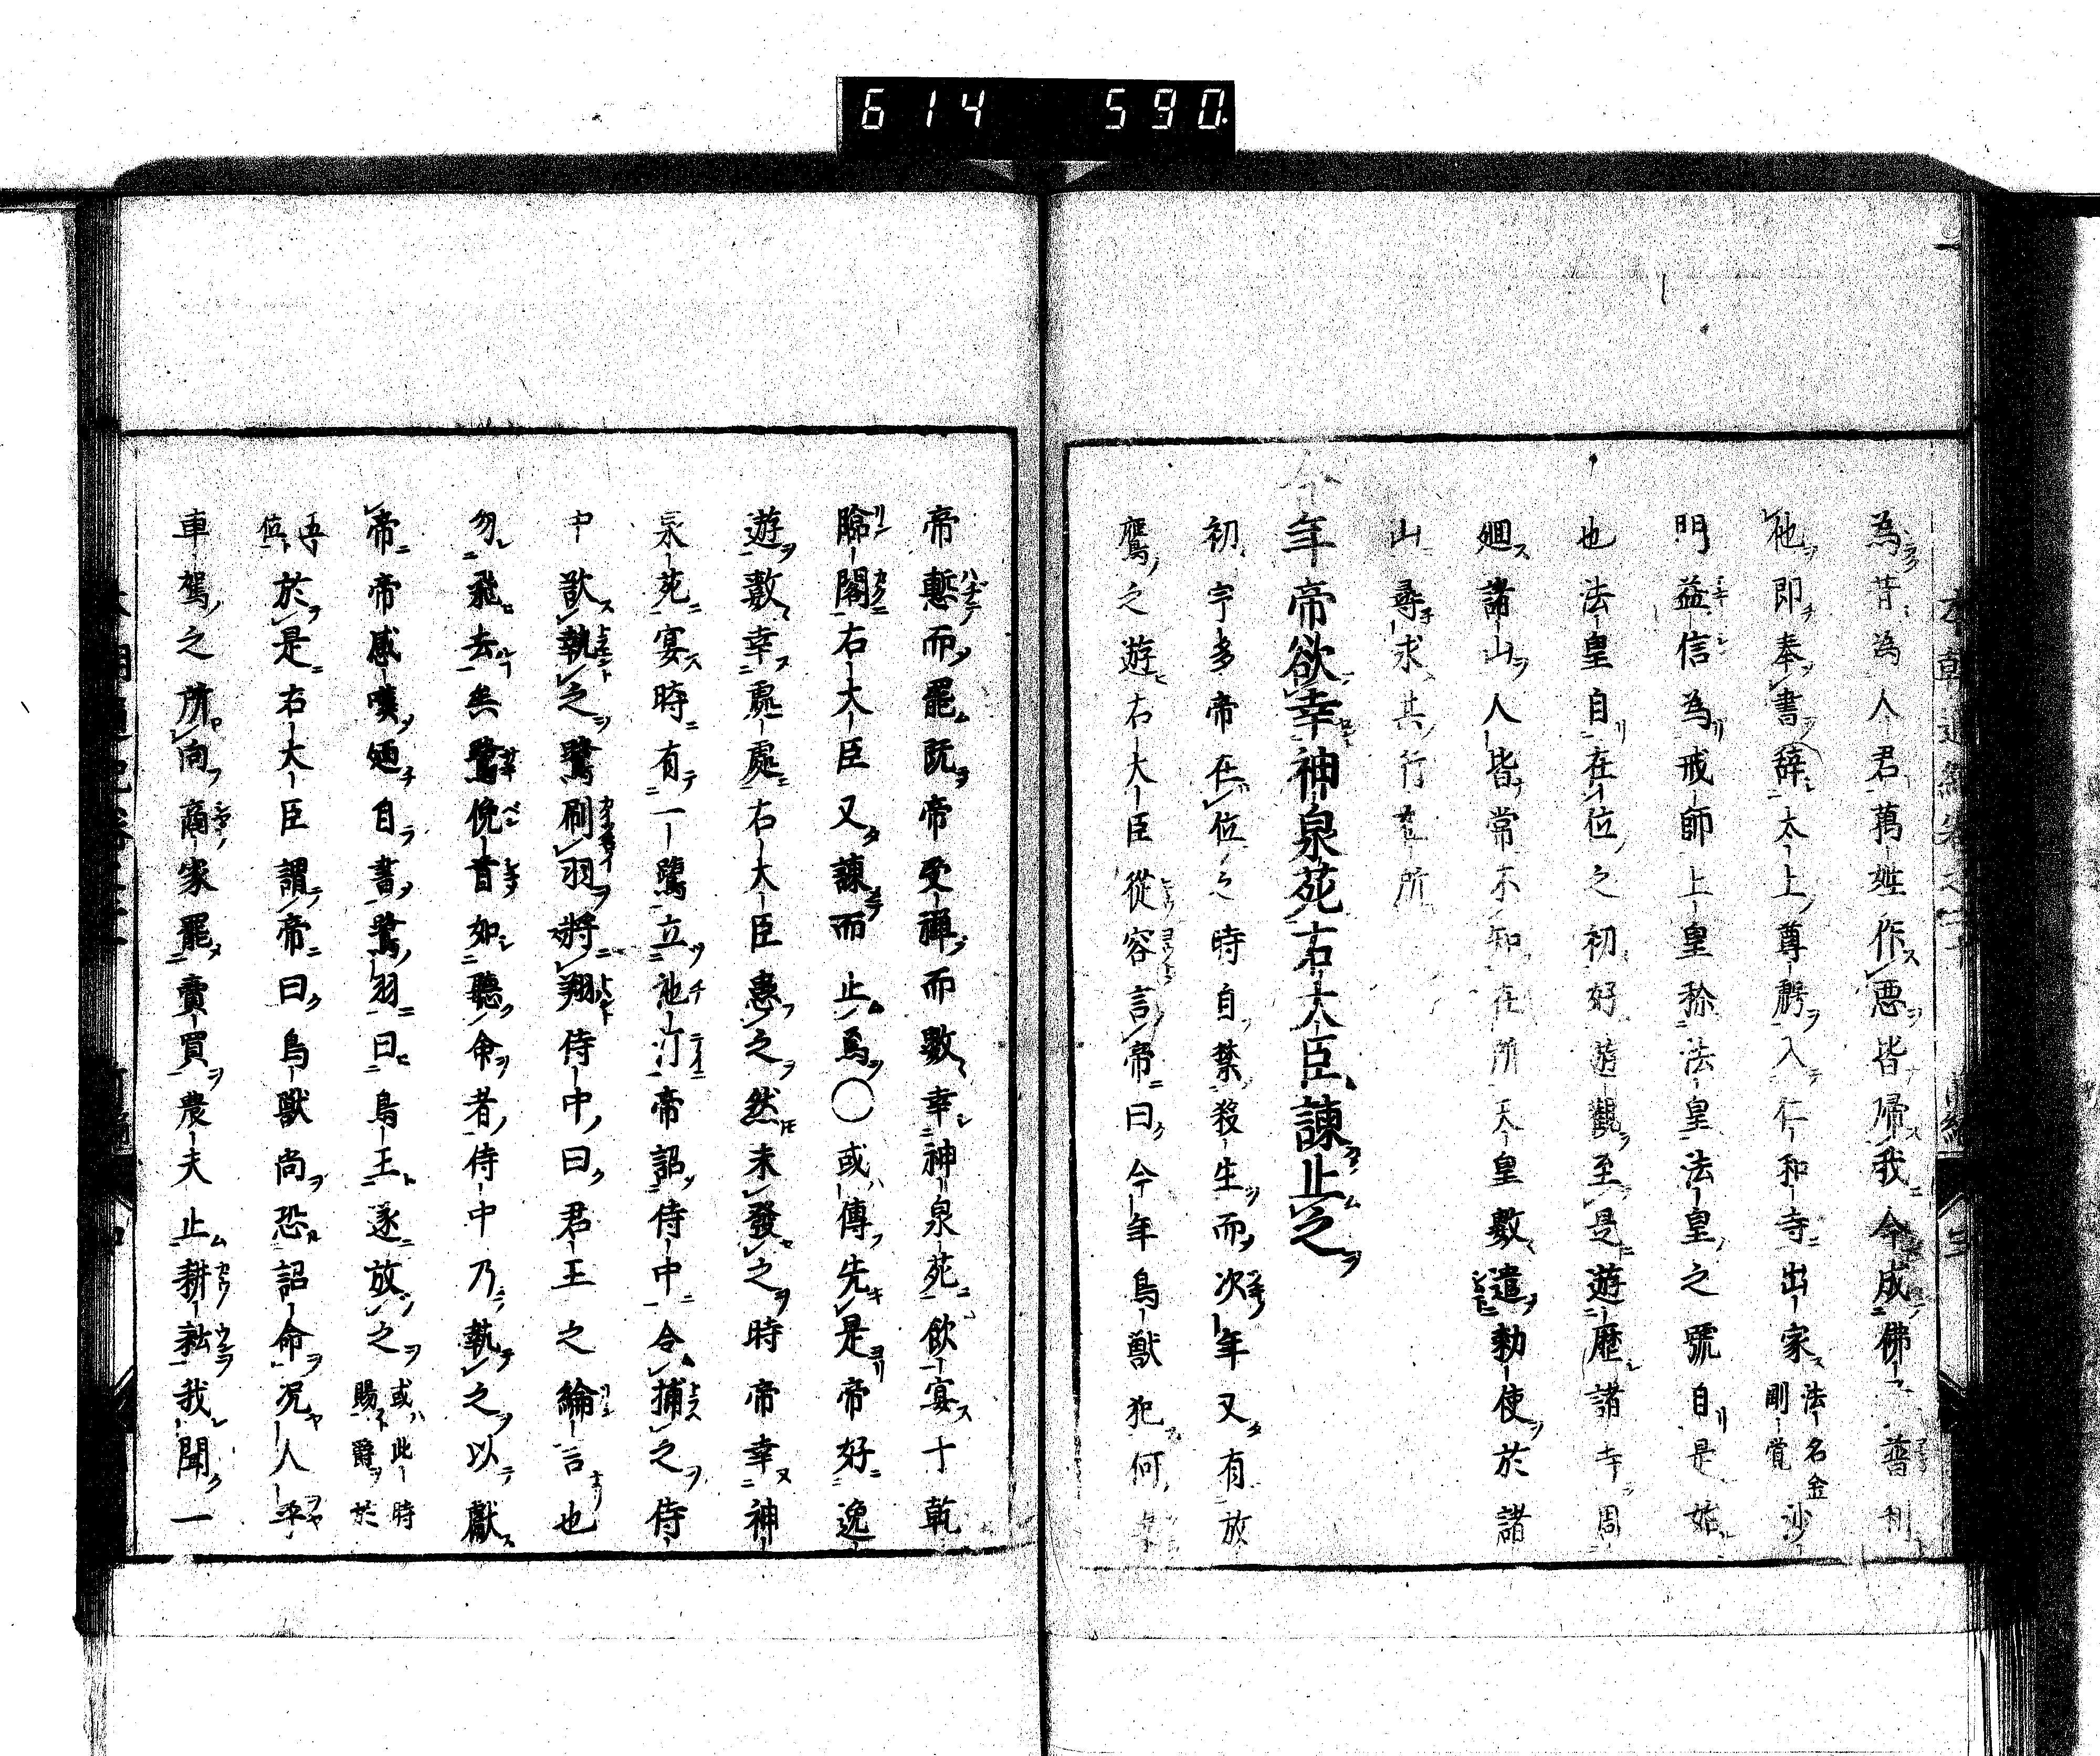 614 590
為昔為人君萬姓作悪皆帰我今成佛普利
他即奉書辞太上尊膀入仁和寺出家法名金剛覚沙
門益信為戒師上皇称法皇法皇之號自是始
也法皇自在位之初好遊觀至是遊歴諸寺周
廻諸山人皆常不知在所天皇數遣勅使於諸
山尋求其行在所
今年帝欲幸神泉苑右大臣諫止之
初宇多帝在位之時自禁殺生而次年又有放
鷹之遊右大臣從容言帝曰今年鳥獣犯何
帝慙而罷既帝受禅而數幸神泉苑飲宴十乾
臨閣右大臣又諫而止焉〇或傳先是帝好逸
遊數幸處處右大臣患之然未發之時帝幸神
泉苑宴時有一鷺立池汀帝詔侍中令捕之侍
中欲執之鷺刷羽將翔侍中曰君王之綸言也
勿飛去矣鷺俛首如聽命者侍中乃執之以獻
帝帝感嘆廼自書鷺羽曰鳥王遂放之或此時賜爵於
五位於是右大臣謂帝曰鳥獸尚恐詔命况人乎
車駕之所向商家罷賣買農夫止耕耘我聞一